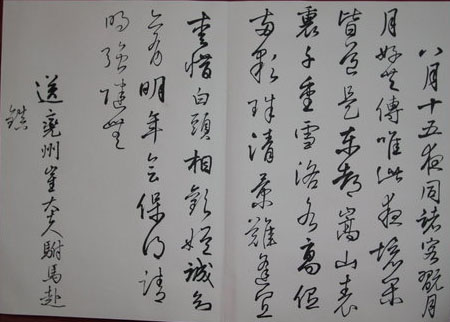 八月十五夜同諸客翫月
月好共傳唯此夜境閑
皆道是東都嵩山表
裏千重雪洛水高低
兩顆珠清景難逢宜
愛惜白頭相歡娛誠知
亦有明年會保得晴
明強健無
送兗州崔大夫駙馬赴
鎮